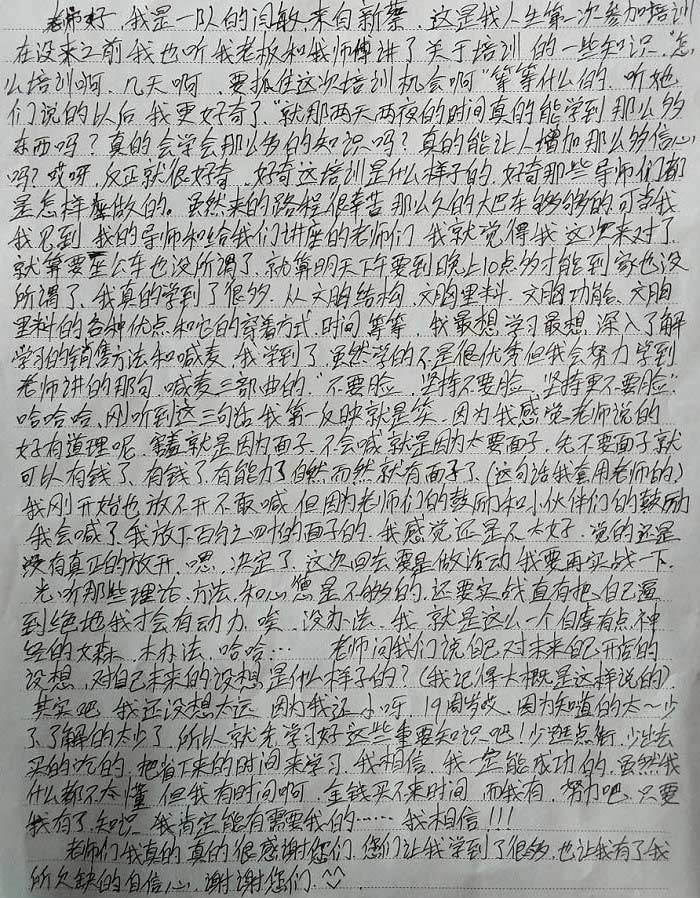 老师好,我是一队的闫敏,来自新蔡,这是我人生第一次参加培训
在没来之前我也听我老板和我师傅讲了关于培训的一些知识,"怎
么培训啊,几天啊,要抓住这次培训机会啊"等等什么的,听她
们说的以后我更好奇了"就那两天两夜的时间真的能学到那么多
东西吗?真的会学会那么多的知识吗?真的能让人增加那么多信心
吗?哎呀,反正就很好奇,好奇这培训是什么样子的,好奇那些导师们都
是怎样做的。虽然来的路程很辛苦那么久的大巴车够够的可当我
我见到我的导师和给我们讲座的老师们,我就觉得我这次来对了,
就算要坐公车也没所谓了,就算明天下午要到晚上10点多才能到家也没
所谓了,我真的学到了很多,从文胸结构,文胸里料,文胸功能,文胸
里料的各种优点和它的穿着方式,时间等等,我最想学习最想,深入了解
学习的销售方法和喊麦,我学到了,虽然学的不是很优秀但我会努力学到
老师讲的那句,喊麦三部曲的,"不要脸,坚持不要脸,坚持更不要脸"
哈哈哈,刚听到这三句话我第一反映就是笑,因为我感觉老师说的
好有道理呢,害羞就是因为面子,不会喊就是因为太要面子,先不要面子就
可以有钱了,有钱了有能力了自然而然就有面子了(这句话我套用老师的)
我刚开始也放不开不敢喊,但因为老师们的鼓励和小伙伴们的鼓励
我会喊了,我放下百分之四十的面子的,我感觉还是不太好,说的还是
没有真正的放开,嗯,决定了,这次回去要是做活动我要再实战一下,
光听那些理论,方法,和心得是不够的,还要实战直有把自己逼
到绝地我才会有动力,唉,没办法,我就是这么一个自虐有点神
经的女森,木办法,哈哈… 老师问我们说自己对未来自己开店的
设想,对自己未来的设想是什么样子的?(我记得大概是这样说的)
其实吧,我还没想太远,因为我还小呀,19周岁哎,因为知道的太~少
了,了解的太少了,所以就先学习好这些重要知识吧!少逛点街,少出去
买的吃的,把省下来的时间来学习,我相信,我一定能成功的,虽然我
什么都不太懂,但我有时间啊,金钱买不来时间,而我有,努力吧,只要
我有了知识,我肯定能有需要我的……我相信!!!
老师们我真的真的很感谢您们,您们让我学到了很多,也让我有了我
所欠缺的自信心,谢谢您们